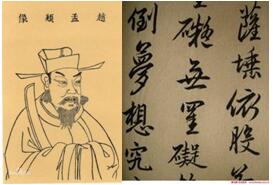 趙孟頫像
薩埵依般
礙無罣礙
倒夢想究